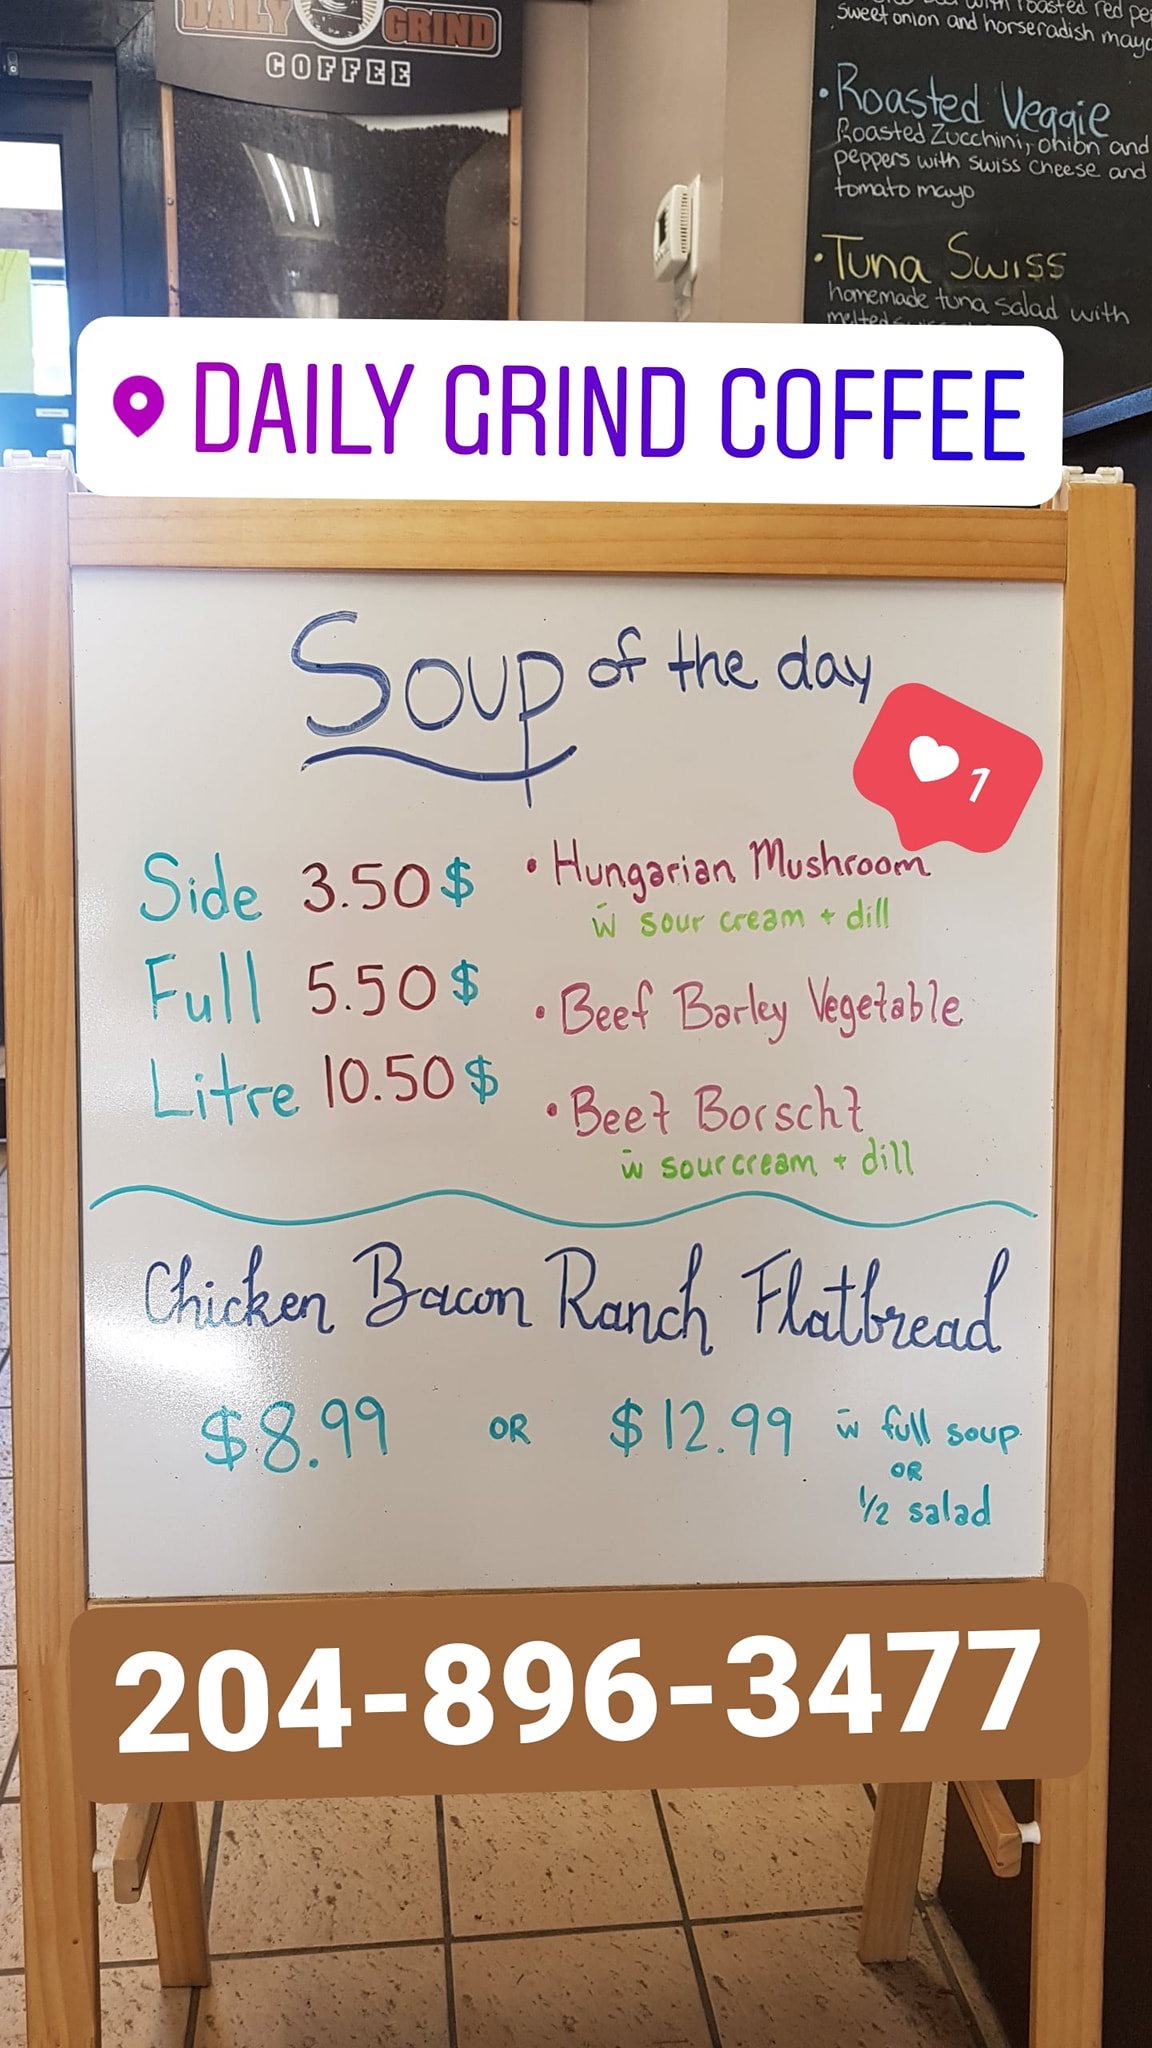 DAILY GRIND
COFFEE
sweet onion and horseradish mayo
• Roasted Veggie
Roasted Zucchini, onion and
peppers with swiss cheese and
tomato mayo
• Tuna Swiss
homemade tuna salad with
melted
DAILY GRIND COFFEE
Soup of the day
1
Side 3.50$
Full 5.50$
Litre 10.50$
• Hungarian Mushroom
w̄ sour cream + dill
• Beef Barley Vegetable
• Beet Borscht
w̄ sour cream + dill
Chicken Bacon Ranch Flatbread
$8.99 OR $12.99 w̄ full soup
OR
1/2 salad
204-896-3477